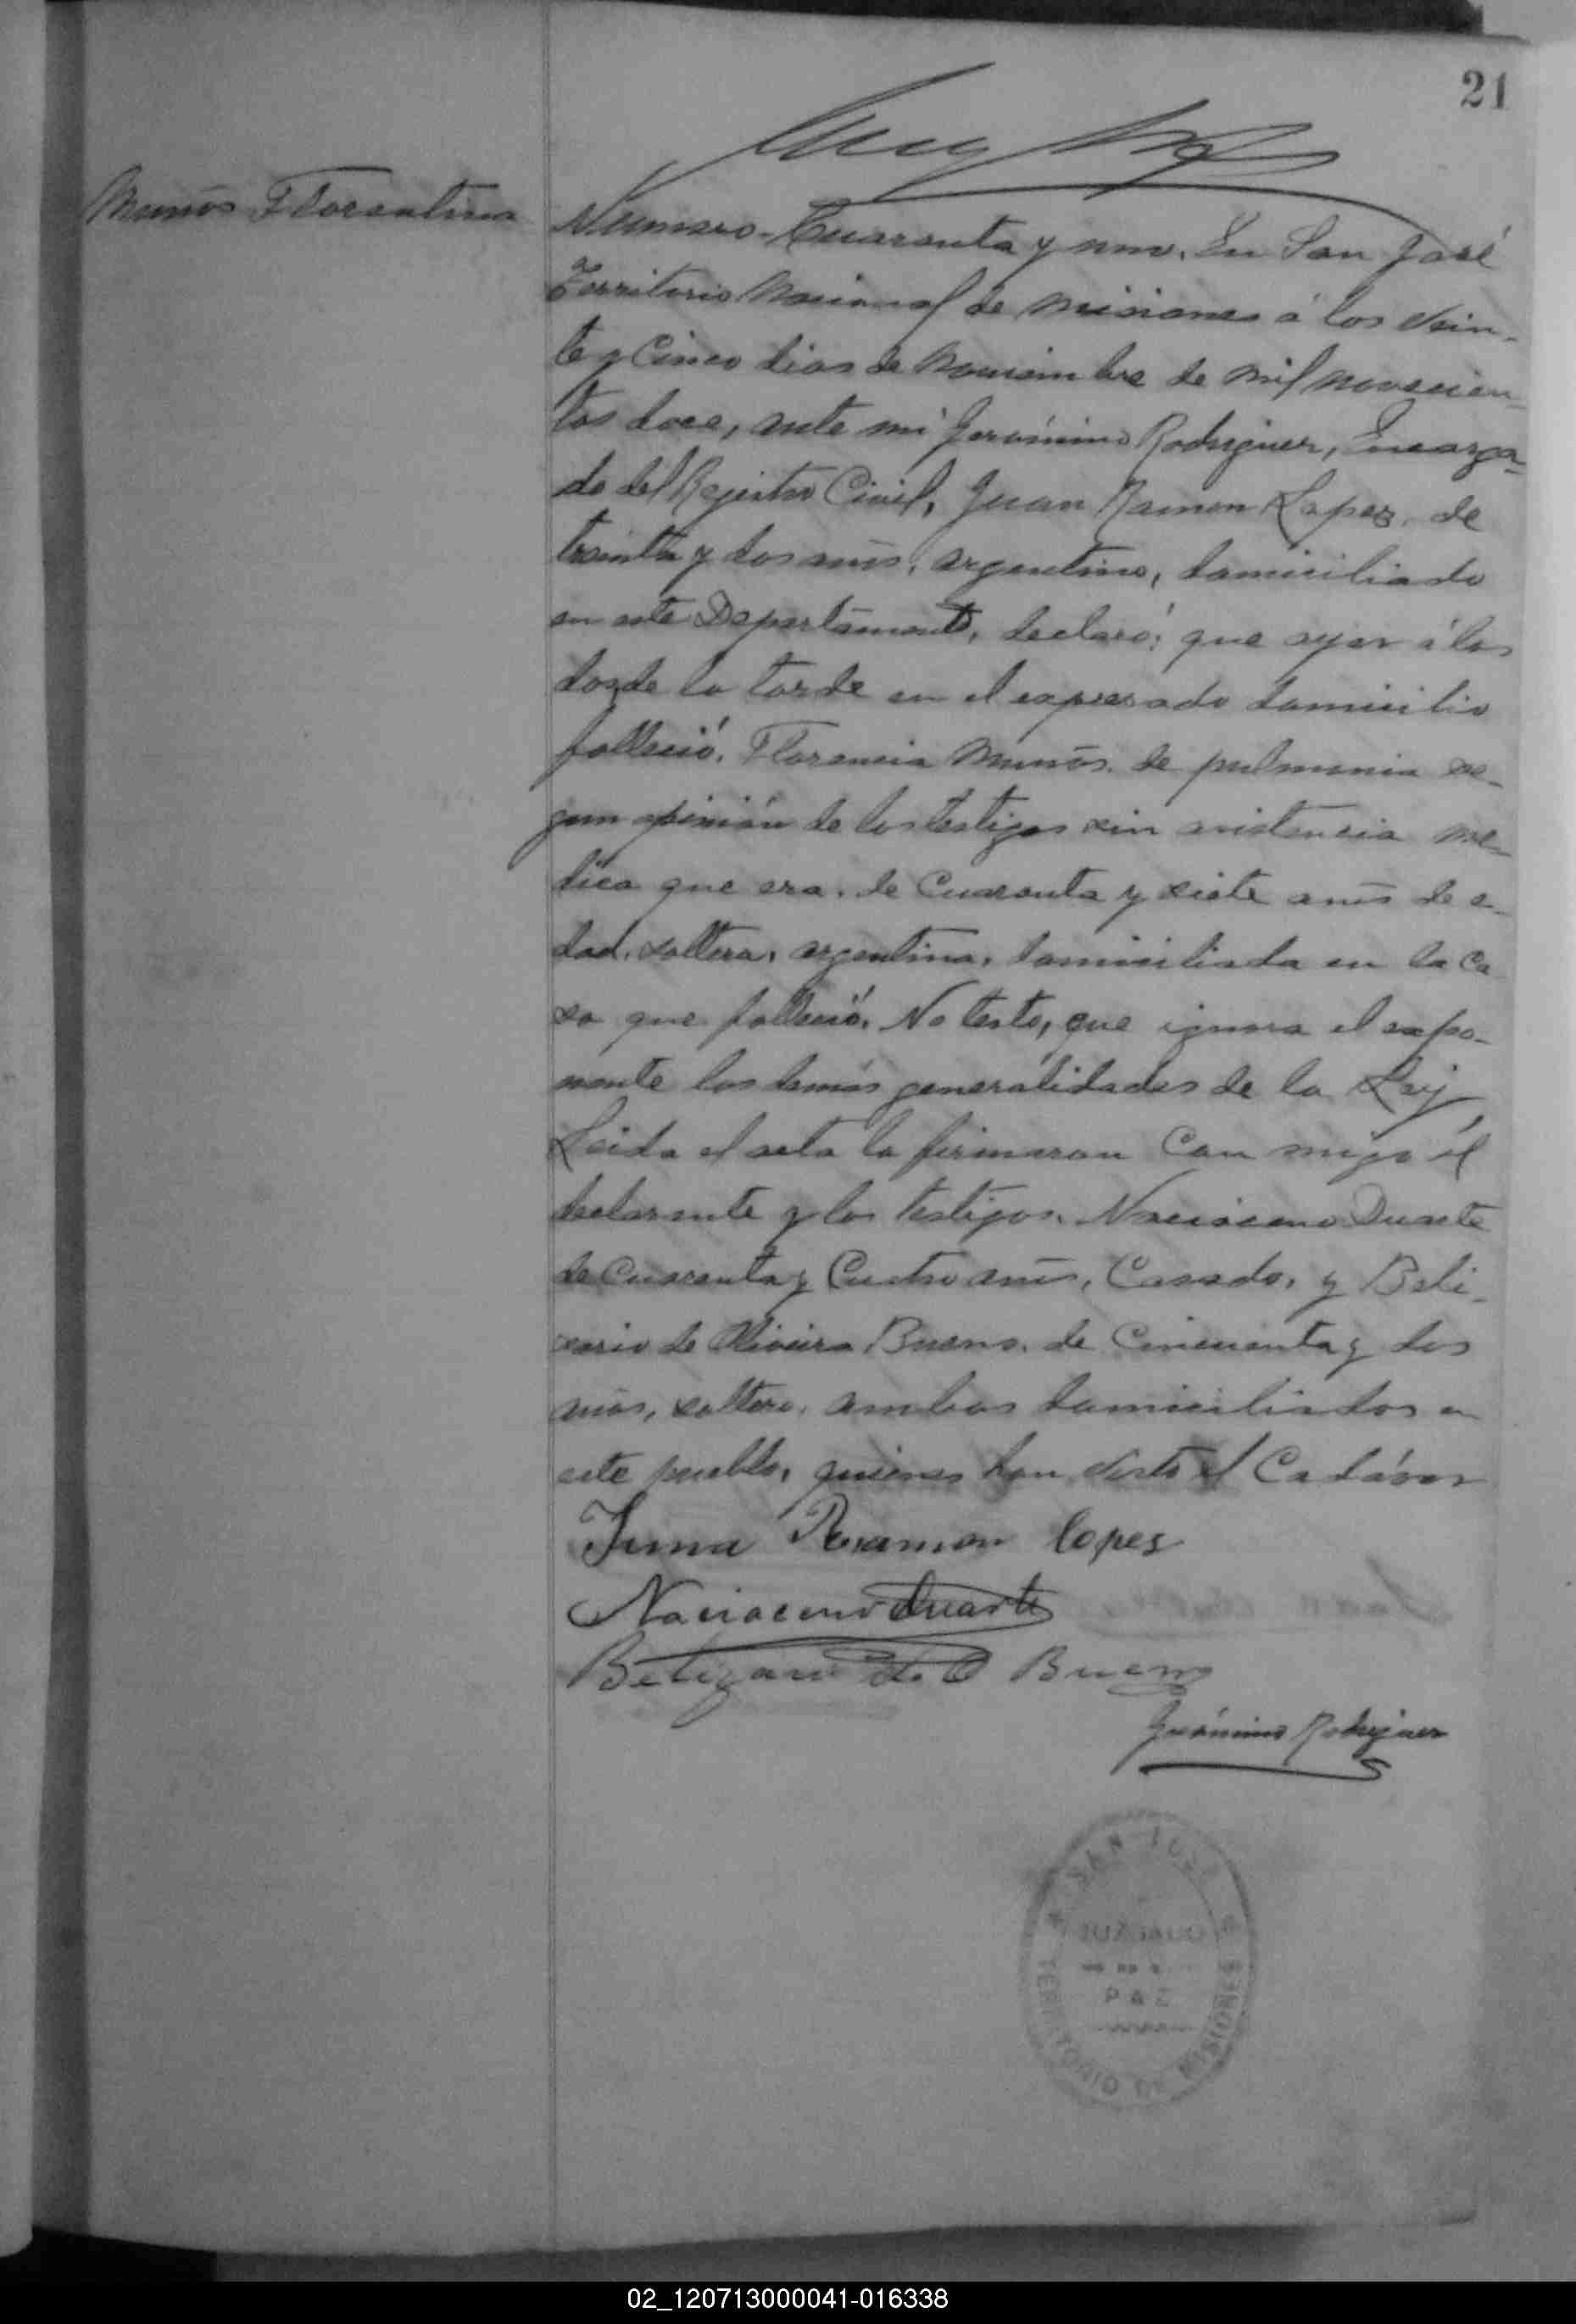 21
Muños Florentina
Numero Cuarenta y uno. En San José
Territorio Nacional de Misiones á los Vein-
te y Cinco dias de Noviembre de mil novecien-
tos doce, ante mi Gerónimo Rodriguez, Encarga-
do del Rejistro Civil, Juan Ramon Lopez, de
treinta y dos años, argentino, domiciliado
en este Departamento, declaró: que ayer á las
dos de la tarde en el expresado domicilio
falleció, Florencia Muños. de pulmonia se-
gun opinión de los testigos sin asistencia me-
dica que era. de Cuarenta y siete años de e-
dad, soltera, argentina, domiciliada en la ca
sa que falleció, No testo, que ignora el expo-
nente las demás generalidades de la Ley
Leida el acta la firmaron Con migo él
declarante y los testigos. Naciaceno Duarte
de Cuarenta y Cuatro años, Casado, y Beli-
sario de Oliveira Bueno. de Cincuenta y dos
años, soltero, ambos domiciliados en
este pueblo, quienes han visto el Cadáver
Juna Ramon lopes
Naciaceno Duarte
Belizario de O Bueno
Gerónimo Rodriguez
SAN JOSE
JUZGADO
DE
PAZ
TERRITORIO DE MISIONES
02_120713000041-016338